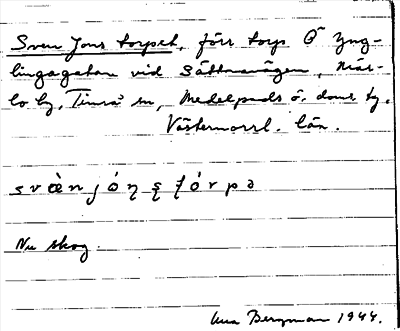 Sven Jons torpet, förr torp Ö Yng-
lingagatan vid Sättnavägen, När-
lo by, Timrå sn, Medelpads ö. doms. hg,
Västernorrl. län.
svὰn jóŋʂ tórpə
Nu skog.
Bergman 1944.